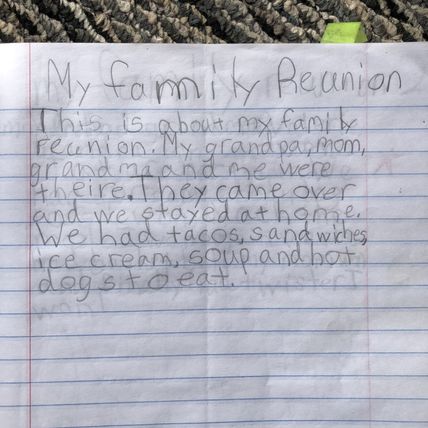 My family Reunion
This is about my family
reunion. My grandpa, mom,
grandma and me were
theire. They came over
and we stayed at home.
We had tacos, sandwiches,
ice cream, soup and hot
dogs to eat.